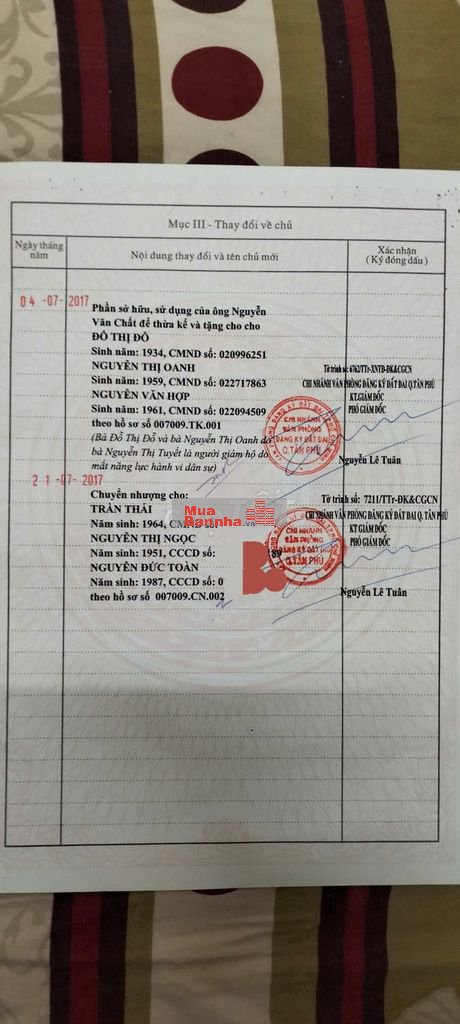 Mục III - Thay đổi về chủ
Ngày tháng năm
Nội dung thay đổi và tên chủ mới
Xác nhận
( Ký đóng dấu )
04 -07- 2017
Phần sở hữu, sử dụng của ông Nguyễn
Văn Chất để thừa kế và tặng cho cho
ĐỖ THỊ ĐÔ
Sinh năm: 1934, CMND số: 020996251
NGUYỄN THỊ OANH
Sinh năm: 1959, CMND số: 022717863
NGUYỄN VĂN HỢP
Sinh năm: 1961, CMND số: 022094509
theo hồ sơ số 007009.TK.001
(Bà Đỗ Thị Đổ và bà Nguyễn Thị Oanh do
bà Nguyễn Thị Tuyết là người giám hộ do
mất năng lực hành vi dân sự)
Tờ trình số: 6762/TTr-XNTD-ĐK&CGCN
CHI NHÁNH VĂN PHÒNG ĐĂNG KÝ ĐẤT ĐAI Q.TÂN PHÚ
KT.GIÁM ĐỐC
PHÓ GIÁM ĐỐC
CHI NHÁNH
VĂN PHÒNG
ĐĂNG KÝ ĐẤT ĐAI
Q.TÂN PHÚ
Nguyễn Lê Tuân
21 -07- 2017
Chuyển nhượng cho:
TRẦN THÁI
Năm sinh: 1964,
NGUYỄN THỊ NGỌC
Năm sinh: 1951, CCCD số:
NGUYỄN ĐỨC TOÀN
Năm sinh: 1987, CCCD số: 0
theo hồ sơ số 007009.CN.002
Mua
Bannha.vn
Tờ trình số: 7211/TTr-ĐK&CGCN
CHI NHÁNH VĂN PHÒNG ĐĂNG KÝ ĐẤT ĐAI Q. TÂN PHÚ
KT GIÁM ĐỐC
PHÓ GIÁM ĐỐC
CHI NHÁNH
VĂN PHÒNG
ĐĂNG KÝ ĐẤT ĐAI
Q.TÂN PHÚ
Nguyễn Lê Tuân